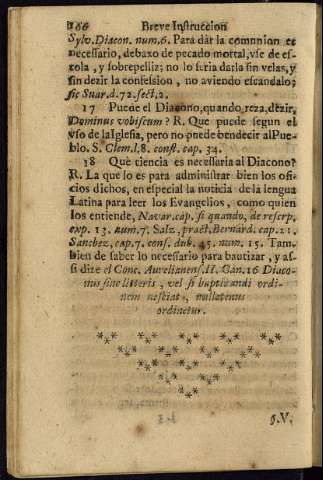 166 Breve Instruccion
Sylv. Diacon. num. 6. Para dàr la comunion es
necessario, debaxo de pecado mortal, vse de es-
tola, y sobrepelliz; no lo seria darla sin velas, y
sin dezir la confession, no aviendo escandalo;
sic Suar. d. 72. sect. 2.
17 Puede el Diacono, quando reza, dezir,
Dominus vobiscum? R. Que puede segun el
vso de la Iglesia, pero no puede bendecir al Pue-
blo. S. Clem. l. 8. const. cap. 34.
18 Què ciencia es necessaria al Diacono?
R. La que lo es para administrar bien los ofi-
cios dichos, en especial la noticia de la lengua
Latina para leer los Evangelios, como quien
los entiende, Navar. cap. si quando, de rescrip.
exp. 13. num. 7. Salz. pract. Bernard. cap. 21.
Sanchez, cap. 7. cons. dub. 45. num. 15. Tam-
bien de saber lo necessario para bautizar, y as-
si dize el Conc. Aurelianens. II. Can. 16 Diaco-
nus sine litteris, vel si baptizandi ordi-
nem nesciat, nullatenus
ordinetur.
§. V.